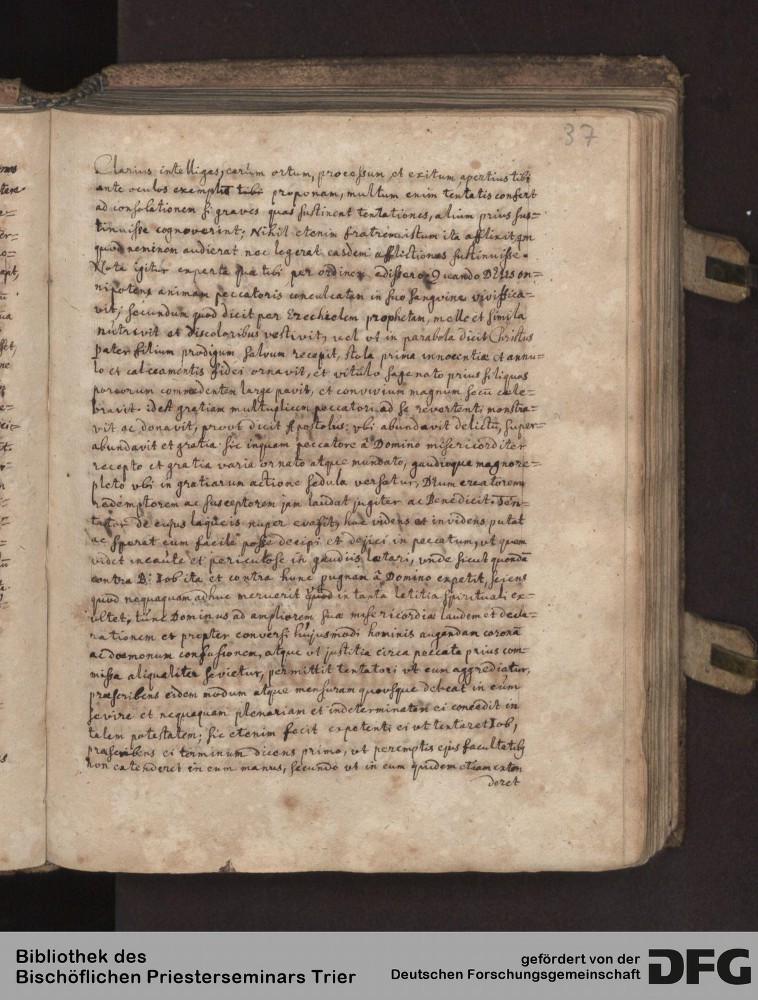 37
Clarius intelliges, earum ortum, processum, et exitum, apertius tibi
ante oculos exemplū tibi proponam, multum enim tentatis confert
ad consolationem si graves quas sustineat tentationes, alium prius sus=
tinuisse cognoverint; Nihil etenim fratrem istum ita afflixit qm
quod neminem audierat nec legerat easdem afflictiones sustinuisse.
Nota igitur experta quæ tibi per ordinem adissero. Quando DEUS om=
nipotens animam peccatoris conculcatam in suo sanguine vivifica=
vit; secundum quod dicit per Ezechielem prophetam, melle et simila
nutrivit et discoloribus vestivit, vel vt in parabola dicit Christus
pater filium prodigum salvum recepit, stola prima innocentiæ et annu=
lo et calceamentis fidei ornavit, et vitulo saginato prius siliquas
porcorum commedentem large pavit, et convivium magnum secū cele=
bravit. idest gratiam multuplicem peccatori ad se revertenti monstra=
vit ac donavit, prout dicit Apostolus: vbi abundavit delictū, super=
abundavit et gratia. Sic inquam peccatore à Domino misericorditer
recepto et gratia varia ornato atque mundato, gaudioque magno re=
pleto vbi in gratiarum actione sedula versatur, DEum creatorem,
redemptorem ac susceptorem jam laudat jugiter ac Benedicit. Ten=
tator de cujus laqueis nuper evasit, huc videns et invidens putat
ac sperat eum facile posse decipi et dejici in peccatum, vt quem
videt incaute et periculose in gaudiis lætari, vnde sicut quondā
contra B: Iob ita et contra hunc pugnam à Domino expetit, sciens
quod nequaquam adhuc meruerit quod in tanta letitia spirituali ex=
ultet, tunc Dominus ad ampliorem suæ misericordiæ laudem et decla=
rationem et propter conversi hujusmodi hominis augendam coronā
ac dæmonum confusionem, atque vt justitia circa peccata prius com=
missa aliqualiter sevietur, permittit tentatori vt eum aggrediatur,
præscribens eidem modum atque mensuram quovsque debeat in eūm
sevire et nequaquam plenariam et indeterminatam ei concedit in
talem potestatem; sic etenim fecit expetenti ei vt tentaret Iob,
præscribens ei terminum dicens primo, vt peremptis ejus facultatibꝫ
non extenderet in eum manus, secundo vt in eum quidem etiam exten
deret
Bibliothek des
Bischöflichen Priesterseminars Trier
gefördert von der
Deutschen Forschungsgemeinschaft
DFG